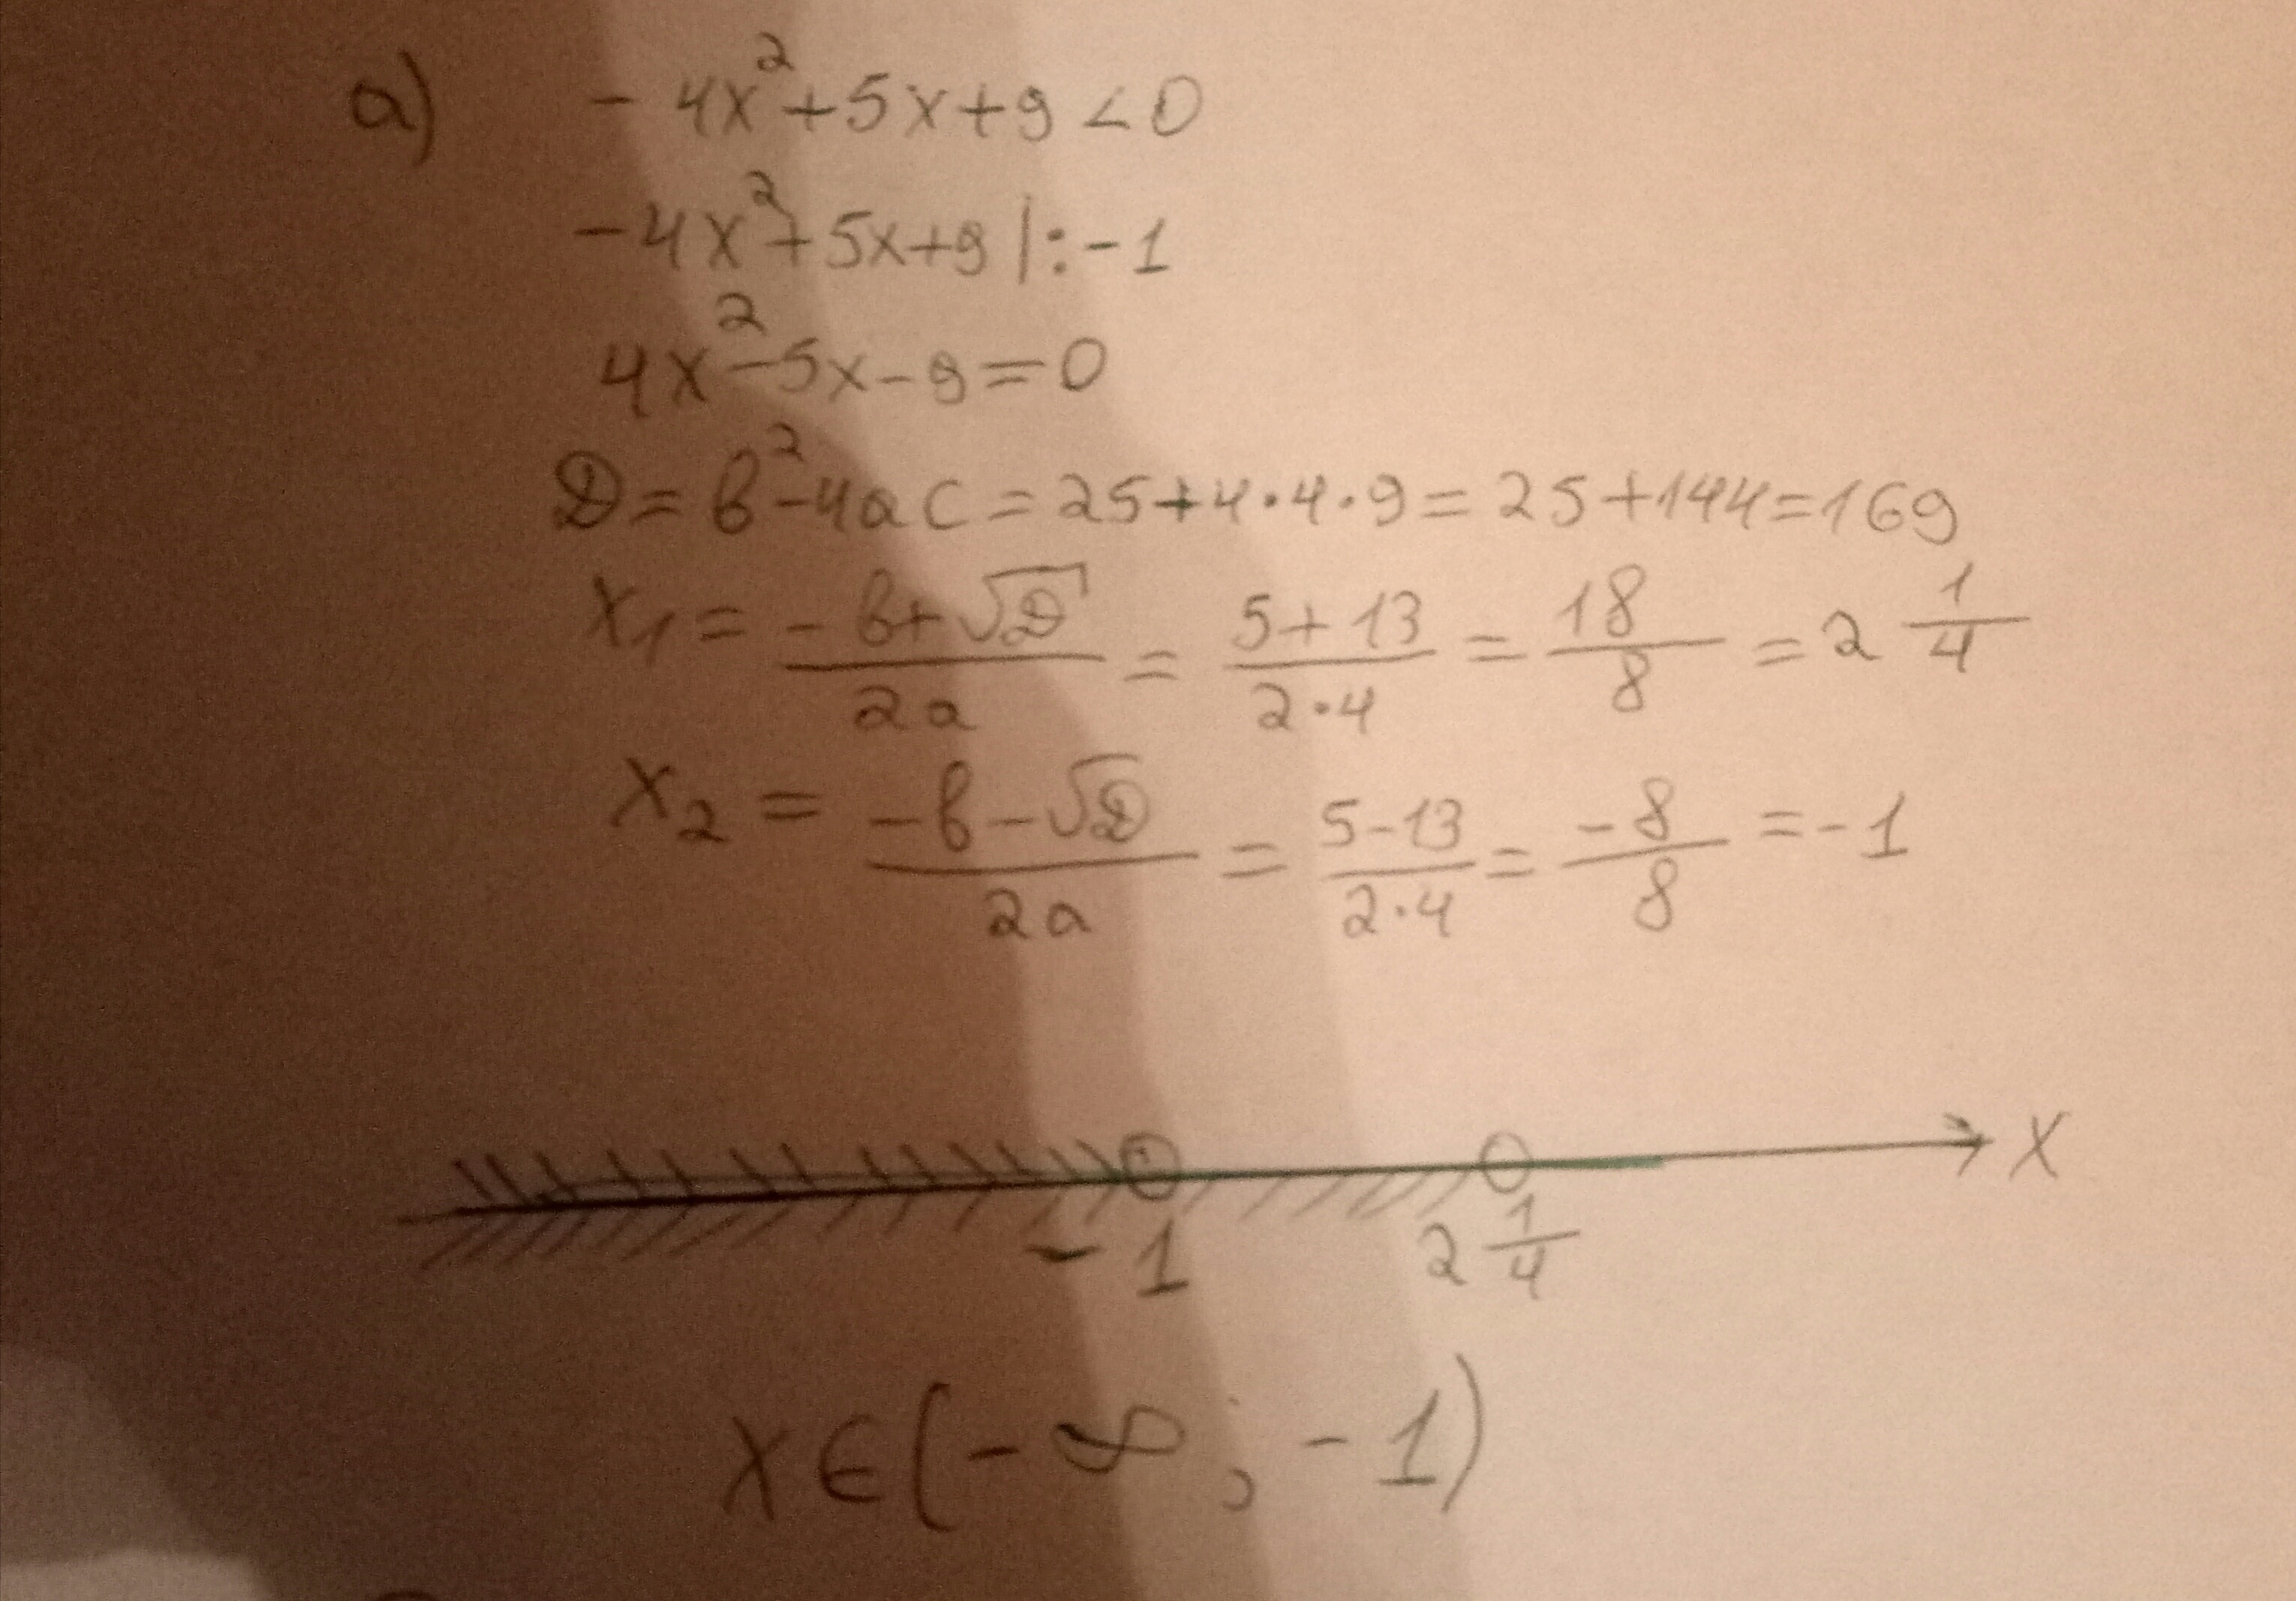 а) -4x²+5x+9<0
-4x²+5x+9 |:-1
4x²-5x-9=0
D=b²-4ac=25+4·4·9=25+144=169
x₁=(-b+√D)/(2a)=(5+13)/(2·4)=18/8=2 1/4
x₂=(-b-√D)/(2a)=(5-13)/(2·4)=-8/8=-1
x
-1 2 1/4
x∈(-∞;-1)